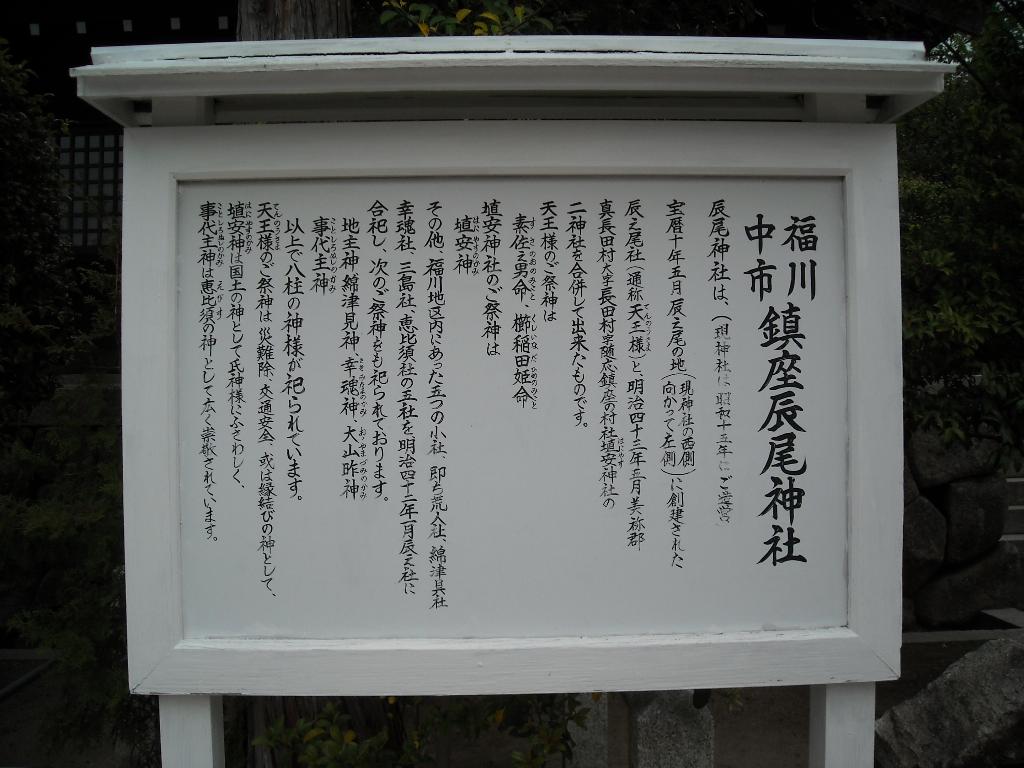 福川
中市 鎮座辰尾神社
辰尾神社は、(現神社は昭和十五年にご造営)
宝暦十年五月 辰之尾の地(現神社の西側 向かって左側)に創建された
辰之尾社(通称天王様)と、明治四十三年五月美祢郡
真長田村大字長田村字随応鎮座の村社埴安神社の
二神社を合併して出来たものです。
天王様のご祭神は
素佐之男命、櫛稲田姫命
埴安神社のご祭神は
埴安神
その他、福川地区内にあった五つの小社、即ち荒人社、綿津見社
幸魂社、三島社、恵比須社の五社を明治四十二年一月辰之社に
合祀し、次のご祭神をも祀られております。
地主神、綿津見神、幸魂神、大山昨神
事代主神
以上で八柱の神様が祀られています。
天王様のご祭神は 災難除、交通安全、或は縁結びの神として、
埴安神は国土の神として氏神様にふさわしく、
事代主神は恵比須の神として広く崇敬されています。